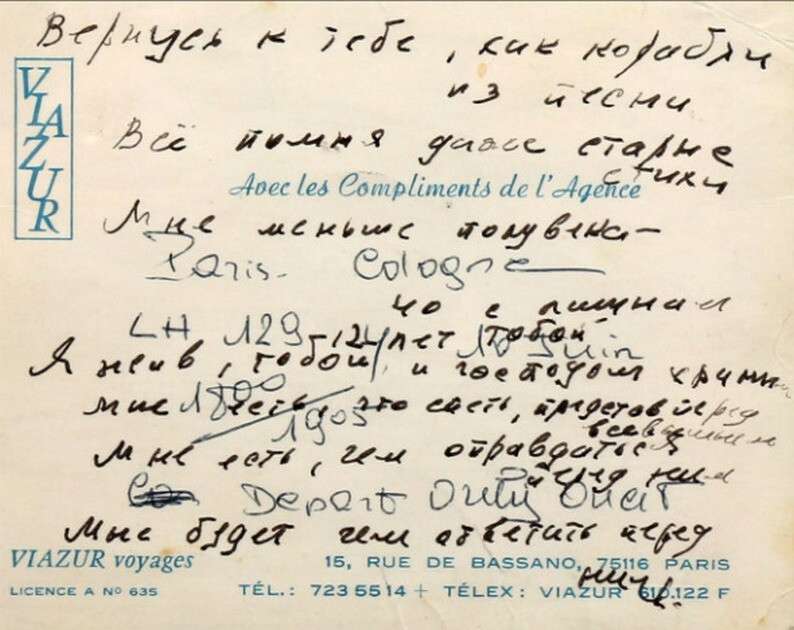 Вернусь к тебе, как корабли
из песни
VIAZUR
Всё помня даже старые
стихи
Avec les Compliments de l'Agence
Мне меньше полувека—
Paris- Cologne
но с лишним
LH 129 - 12 лет тобой 10 Juin
Я жив, тобой и господом храним
1800
мне есть, что спеть, представ перед
всевышнем
1905
Мне есть, чем оправдаться
перед ним
Depart Orly Ouest
Мне будет чем ответить перед
ним.
VIAZUR voyages
15, RUE DE BASSANO, 75116 PARIS
LICENCE A No 635
TÉL.: 723 55 14 + TÉLEX: VIAZUR 610.122 F